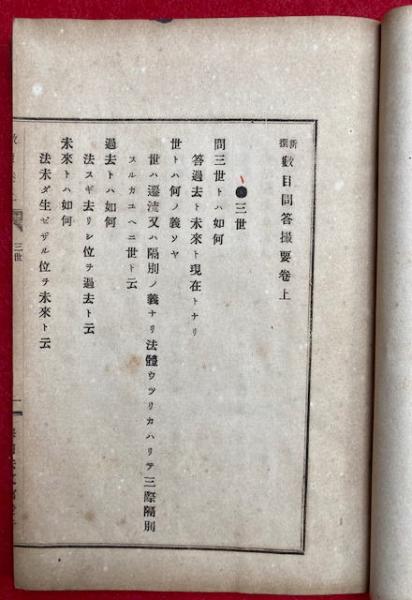 新撰數目問答撮要卷上
●三世
問三世トハ如何
答過去ト未來ト現在トナリ
世トハ何ノ義ソヤ
世ハ遷流又ハ隔別ノ義ナリ法體ウツリカハリテ三際隔別
スルカユヘニ世ト云
過去トハ如何
法スギ去リシ位ヲ過去ト云
未來トハ如何
法未ダ生ゼザル位ヲ未來ト云
三世
一